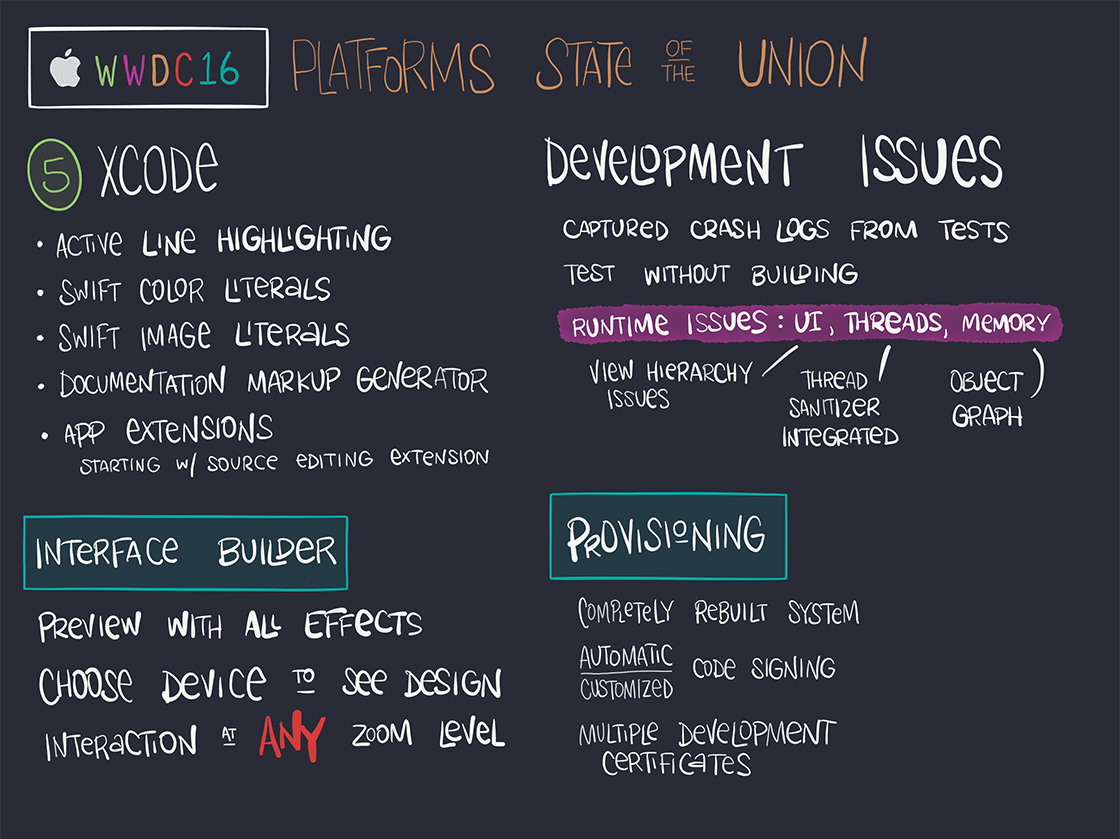 WWDC16 PLATFORMS STATE OF THE UNION
5 XCODE
• ACTIVE LINE HIGHLIGHTING
• SWIFT COLOR LITERALS
• SWIFT IMAGE LITERALS
• DOCUMENTATION MARKUP GENERATOR
• APP EXTENSIONS
STARTING W/ SOURCE EDITING EXTENSION
INTERFACE BUILDER
PREVIEW WITH ALL EFFECTS
CHOOSE DEVICE TO SEE DESIGN
INTERACTION AT ANY ZOOM LEVEL
DEVELOPMENT ISSUES
CAPTURED CRASH LOGS FROM TESTS
TEST WITHOUT BUILDING
RUNTIME ISSUES : UI, THREADS, MEMORY
VIEW HIERARCHY
ISSUES
THREAD
SANITIZER
INTEGRATED
OBJECT
GRAPH
PROVISIONING
COMPLETELY REBUILT SYSTEM
AUTOMATIC
CUSTOMIZED
CODE SIGNING
MULTIPLE DEVELOPMENT
CERTIFICATES